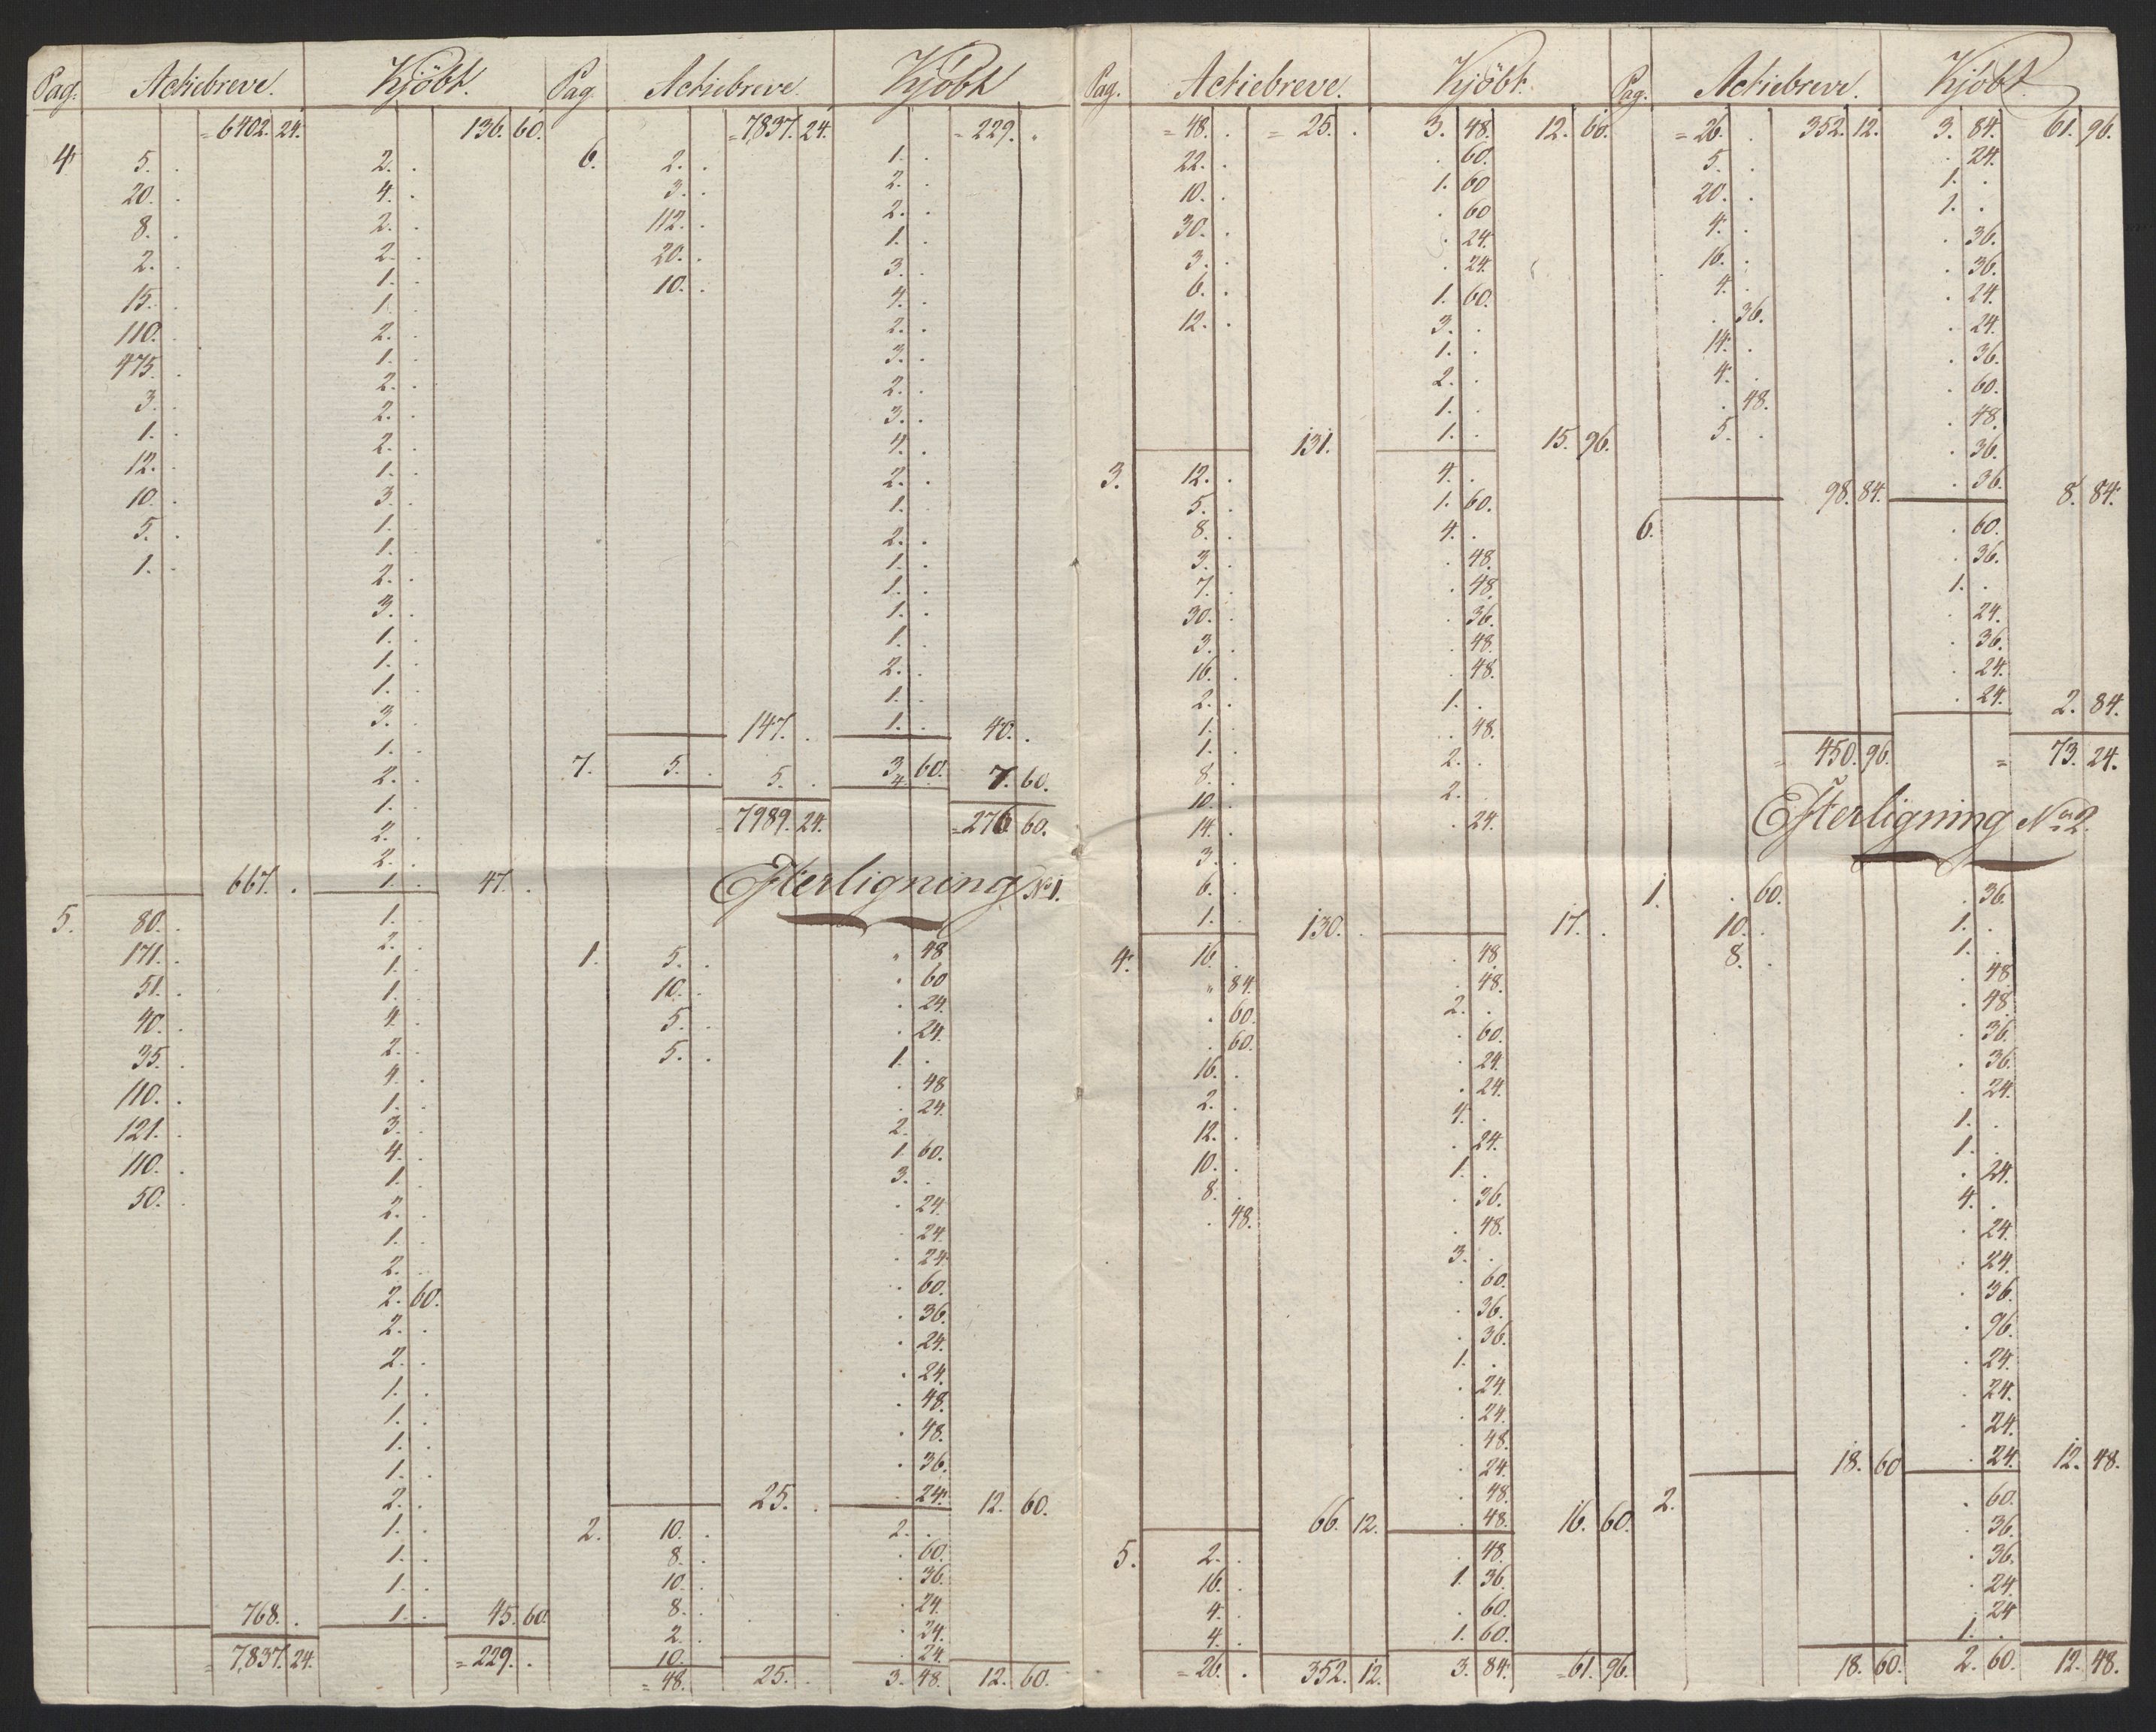 Pag. Actiebreve. Kjöbt.
= 6402. 24. 136. 60.
4. 5. . 2. .
20. . 4. .
8. . 2. .
2. . 2. .
15. . 1. .
110. . 1. .
475. . 2. .
3. . 1. .
1. . 2. .
12. . 2. .
10. . 2. .
5. . 1. .
1. . 3. .
1. .
1. .
2. .
3. .
1. .
1. .
1. .
3. .
1. .
2. .
1. .
2. .
2. .
667. . 1. . 47. .
5. 80. . 1. .
171. . 2. .
51. . 1. .
40. . 1. .
35. . 4. .
110. . 2. .
121. . 4. .
110. . 1. .
50. . 3. .
4. .
1. .
2. .
1. .
2. .
2. 60.
2. .
2. .
1. .
1. .
1. .
1. .
2. .
1. .
1. .
1. .
768. . 1. . 45. 60
= 7,837. 24. = 229. .
Pag. Actiebreve. Kjöbt
= 7,837. 24. = 229. .
6. 2. . 1. .
3. . 2. .
112. . 2. .
20. . 1. .
10. . 3. .
4. .
2. .
3. .
2. .
3. .
4. .
2. .
1. .
2. .
1. .
1. .
1. .
1. .
2. .
1. .
147. . 1. . 40. .
7. 5. . 5. . 3. 60. 7. 60.
4.
= 7989. 24. = 276 60.
Efterligning No 1.
1. 5. . " 48
10. . . 60
5. . . 24.
5. . . 24.
1. .
. 48
. 24.
2. .
1. 60.
3. .
. 24.
. 24.
. 24
. 60.
. 36.
. 24.
. 24.
. 48.
. 48.
. 36.
25. . . 24. 12. 60.
2. 10. . 2. .
8. . . 60.
10. . . 36.
8. . . 24.
2. . . 24.
10. . . 24.
= 48. 25. . 3. 48. 12. 60.
Pag. Actiebreve. Kjöbt.
= 48. . = 25. . 3. 48. 12. 60.
22. . . 60.
10. . 1. 60
30. . . 60
3. . . 24.
6. . . 24.
12. . 1. 60.
3. .
1. .
2. .
1. .
131. 1. . 15. 96.
3. 12. . 4. .
5. . 1. 60.
8. . 4. .
3. . . 48.
7. . . 48.
30. . . 36.
3. . . 48.
16. . . 48.
2. . 1. .
1. . . 48.
1. . 2. .
8. . 2. .
10. . . 24.
14. .
3. .
6. .
1. . 130. . 17. .
4. 16. . . 48.
" 84. . 48.
. 60. 2. .
. 60. . 60.
16. . . 24.
2. . . 24.
12. . 4. .
10. . . 24.
8. . 1. .
. 48. . 36.
. 48.
3. .
. 60.
. 36.
. 36.
1. .
. 24.
. 24.
. 48.
. 24.
. 48.
66. 12. . 48. 16. 60.
5. 2. . . 48.
16. . 1. 36.
4. . . 60.
4. . 1. 60.
= 26. . 352. 12. 3. 84. = 61. 96.
Pag. Actiebreve. Kjöbt.
= 26. . 352. 12. 3. 84. 61. 96.
5. . . 24.
20. . 1. .
4. . 1. .
16. . . 36.
4. . . 36.
. 36. . 24.
14. . . 24.
4. . . 36.
. 48. . 60.
5. . . 48.
. 36.
98. 84. . 36. 8. 84.
6. . 60.
. 36.
1. .
. 24.
. 36.
. 24.
. 24. 2. 84.
= 450. 96. = 73. 24.
Efterligning No 2.
1. . 60. . 36.
10. . 1. .
8. . 1. .
. 48
. 48.
. 36.
. 36.
. 24.
1. .
1. .
. 24.
4. .
. 24.
. 24.
. 36.
. 96.
. 24.
. 24.
. 24.
18. 60 . 24. 12. 48.
2. . 60.
. 36.
. 36.
. 24.
. 24
1. .
18. 60. 2. 60. 12. 48.